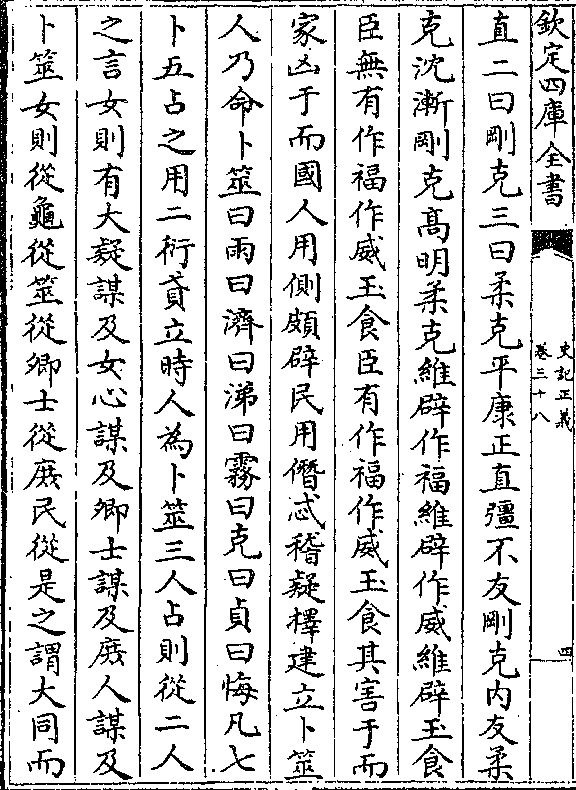 欽定四庫全書
史記正義
卷三十八
四
直二曰剛克三曰柔克平康正直彊不友剛克内友柔
克沈漸剛克髙明柔克維辟作福維辟作威維辟玉食
臣無有作福作威玉食臣有作福作威玉食其害于而
家凶于而國人用側頗辟民用僭忒稽疑擇建立卜筮
人乃命卜筮曰雨曰濟曰涕曰霧曰克曰貞曰悔凡七
卜五占之用二衍貣立時人為卜筮三人占則從二人
之言女則有大疑謀及女心謀及卿士謀及庶人謀及
卜筮女則從龜從筮從卿士從庶民從是之謂大同而